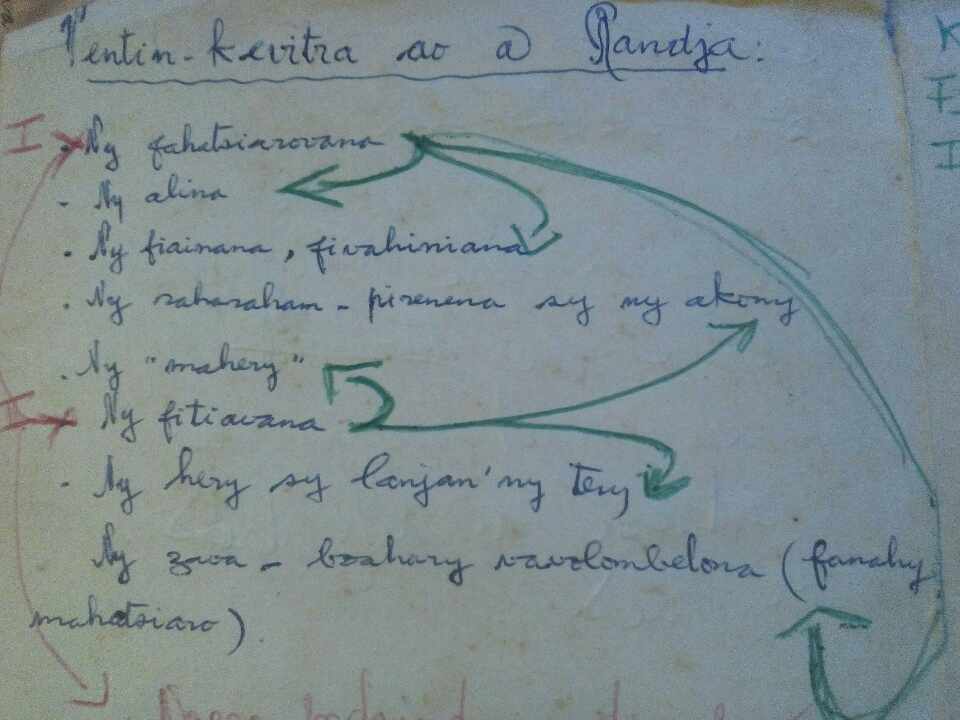 Ventin-kevitra ao @ Randja:
I · Ny fahatsiarovana
- Ny alina
· Ny fiainana, fivahiniana
· Ny sahasaham-pirenena sy ny akony
· Ny "mahery"
I Ny fitiavana
· Ny hery sy lanjan'ny Teny
Ny zava-boahary vavolombelona (fanahy
mahatsiaro).